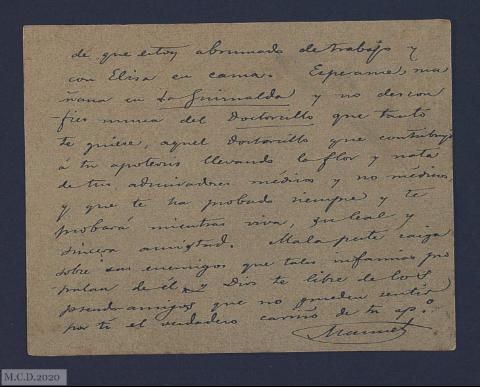 de que estoy abrumado de trabajo y
con Elisa en cama. Esperame ma
ñana en La Guirnalda y no descon
fies nunca del Doctorcillo que tanto
te quiere, aquel Doctorcillo que contribuyó
á tu apoteosis llevando la flor y nata
de tus admiradores médicos y no médicos,
y que te ha probado siempre y te
probará mientras viva, su leal y
sincera amistad. Mala peste caiga
sobre sus enemigos que tales infamias pro
palan de él y Dios te libre de los
pseudo-amigos que no pueden sentir
por ti el verdadero cariño de tu ap.º
Manuel
M.C.D.2020